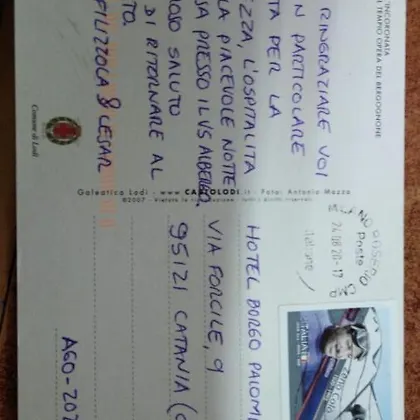 'INCORONATA
TEMPIO OPERA DEL BERGOGNONE
RINGRAZIARE VOI
N PARTICOLARE
TA PER LA
ZZA, L'OSPITALITA
LA PIACEVOLE NOTTE
SA PRESSO IL VS ALBERGO.
OSO SALUTO
DI RITORNARE AL
TO
FILIZZOLA & CESAR
Comune di Lodi
Galeotica Lodi - www.CARTOLODI.it - Foto: Antonio Mazza
©2007 - Vietata la riproduzione - tutti i diritti riservati
Poste
italiane
ITALIA
Zeno Colò
HOTEL BORGO PALOM
VIA FORCILE, 9
95121 CATANIA (C
AGO-20